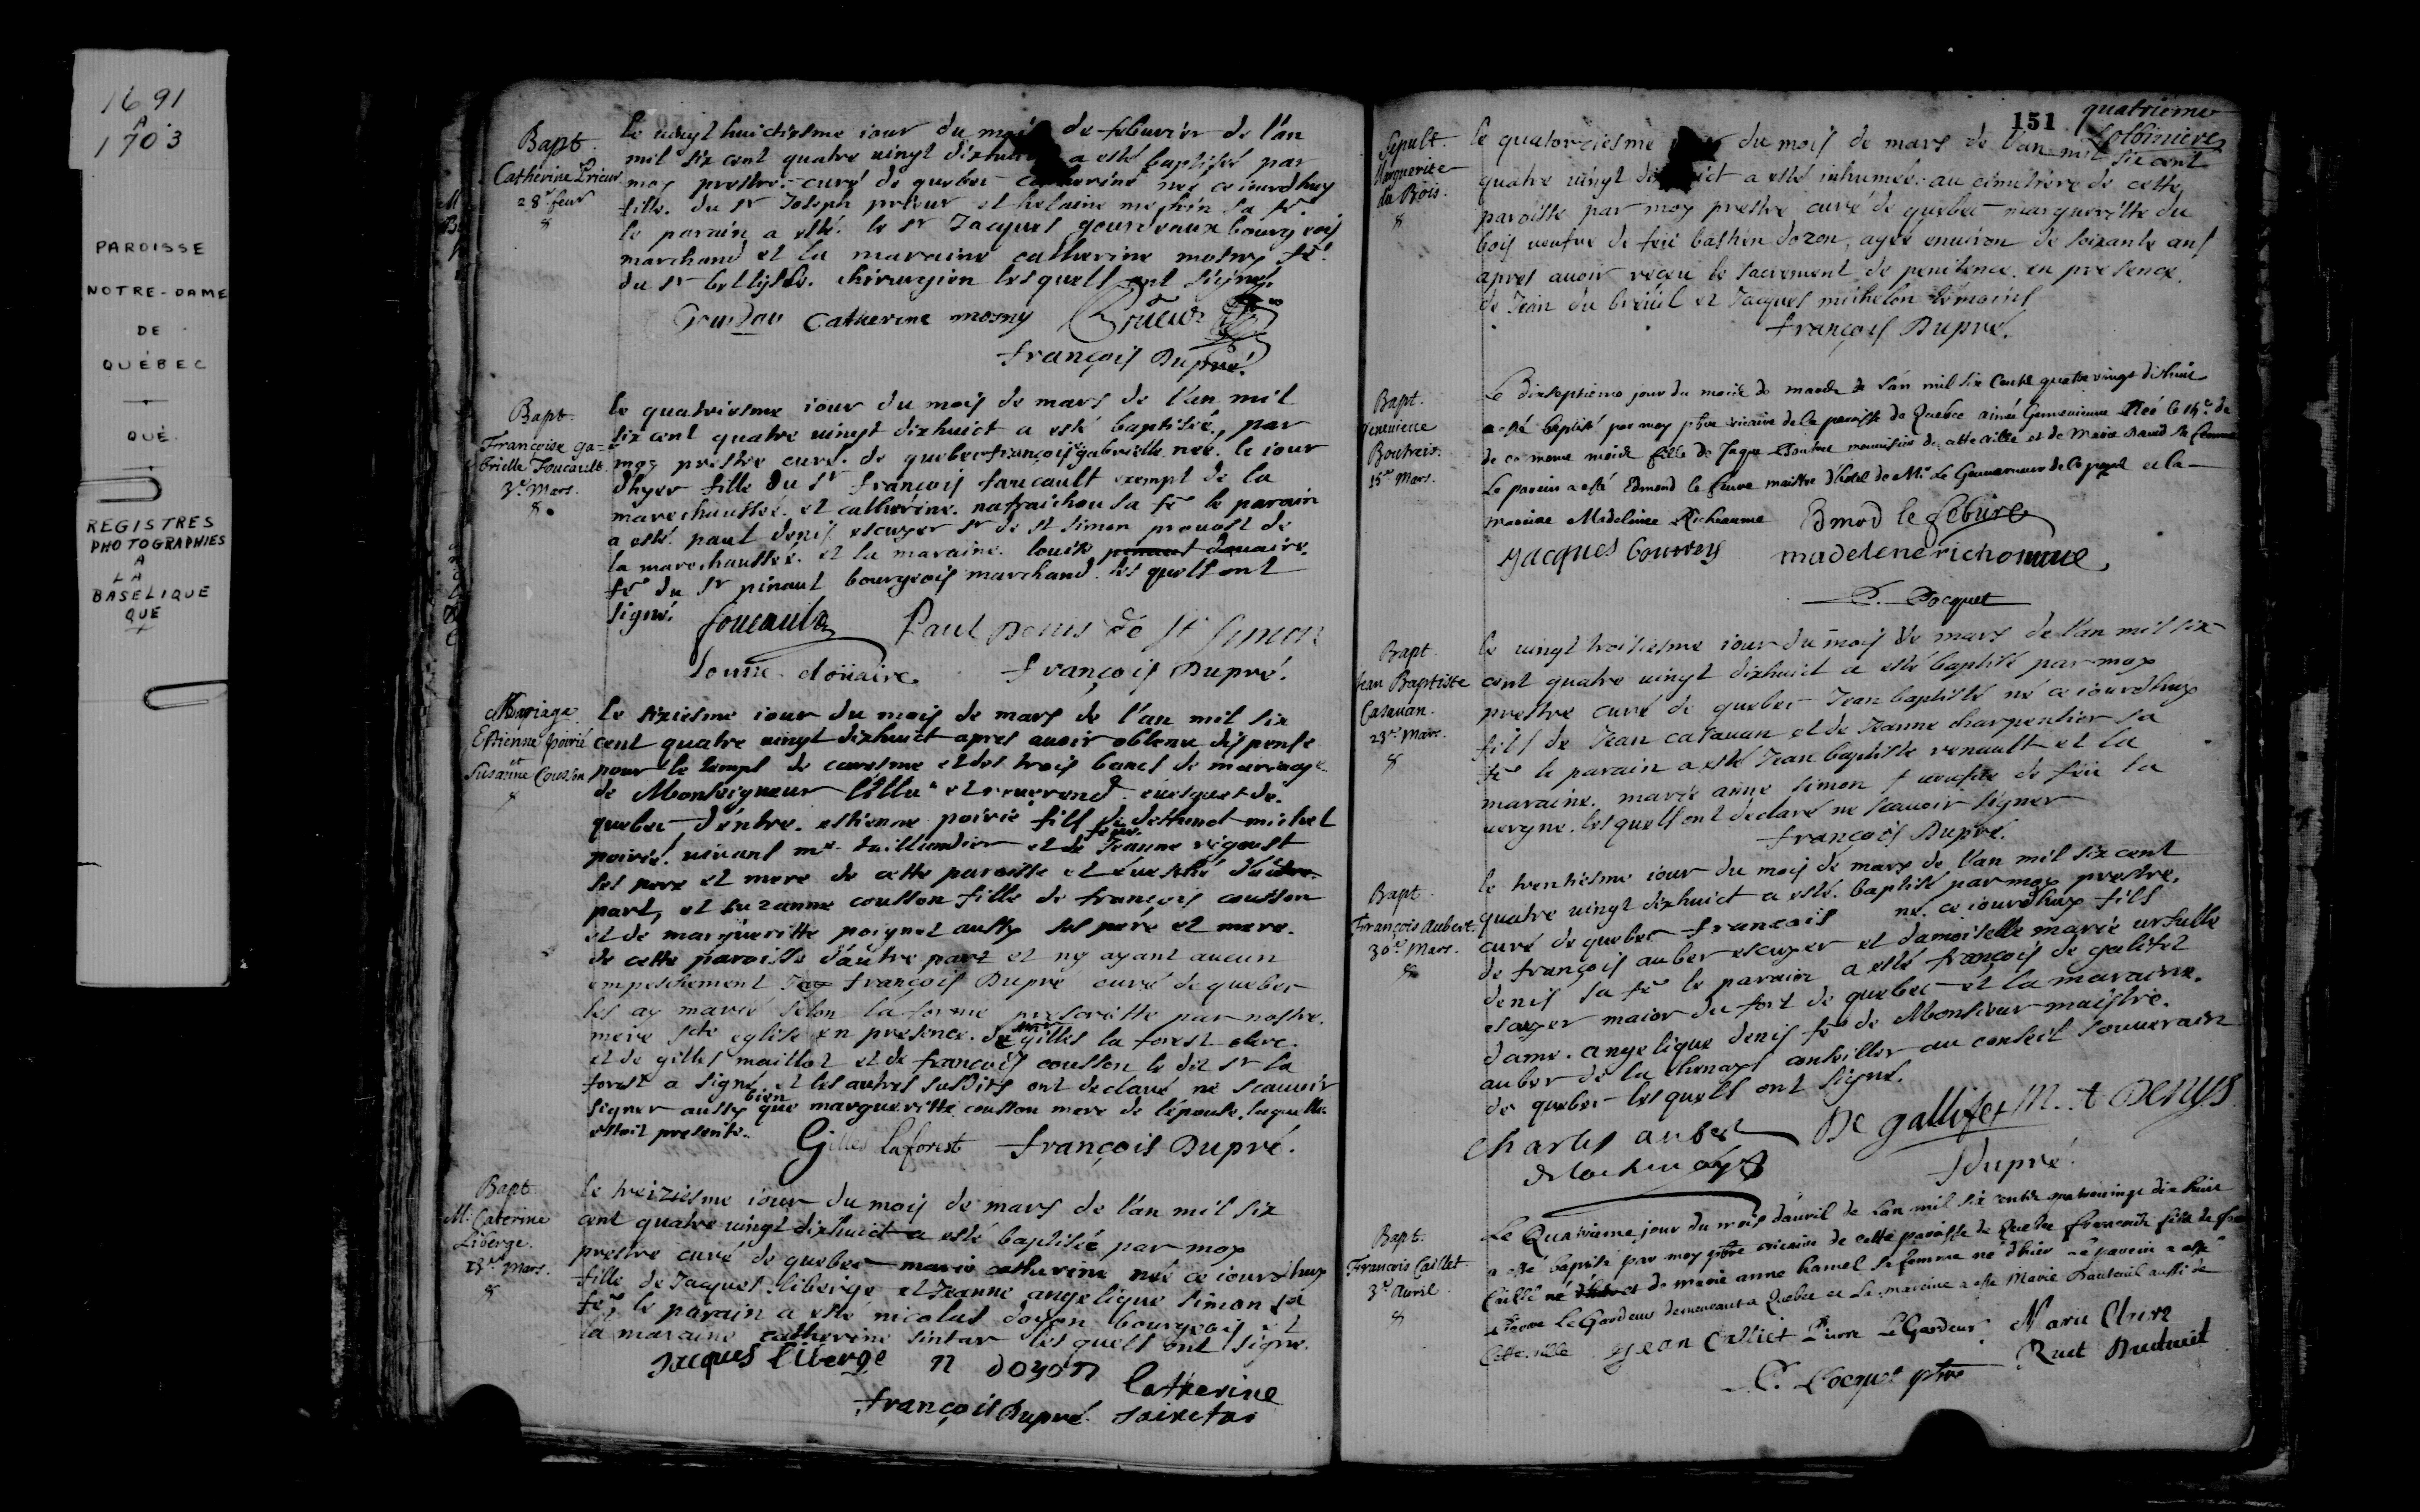 1691
A
1703
PAROISSE
NOTRE-DAME
DE
QUÉBEC
QUÉ.
REGISTRES
PHOTOGRAPHIES
A
LA
BASELIQUE
QUE
Bapt.
Catherine Prieur
28e feur
8
le vingt huictiesme iour du mois de feburier de l'an
mil six cent quatre vingt dixhuict a esté baptisée par
moy prestre curé de quebec catherine née ce iourdhuy
fille du sr Joseph prieur et helaine mechin sa fe
le parain a esté le sr Jacques gourdeaux bourgeois
marchand et la maraine catherine mosny fe
du sr bellisle chirurgien lesquels ont signé
Gourdau Catherine mosny Prieur
françois Dupré.
Bapt.
Françoise ga-
brielle Foucault
3e Mars.
8
le quatriesme iour du mois de mars de l'an mil
six cent quatre vingt dixhuict a esté baptisée, par
moy prestre curé de quebec françoise gabrielle née le iour
dhyer fille du sr françois foucault exempt de la
marechaussée et catherine nafraichou sa fe le parain
a esté paul denis escuyer sr de st simon prevost de
la marechaussée et la maraine louise pinaut douaire
fe du sr pinaut bourgeois marchand lesquels ont
signé.
foucault Paul Denis de St Simon
Louise douaire françois Dupré.
Mariage
Estienne poirié
et
Susanne Cousson
8
le sixiesme iour du mois de mars de l'an mil six
cent quatre vingt dixhuict apres avoir obtenu dispense
pour le temps de caresme et des trois bancs de mariage
de Monseigneur l'illu et reverend evesque de
quebec d'entre estienne poirié fils de deffunct michel
poirié vivant me taillandier et de feue Jeanne rigoust
ses pere et mere de cette paroisse et evesché d'autre
part, et suzanne cousson fille de françois cousson
et de margueritte poignet aussy ses pere et mere
de cette paroisse d'autre part et ny ayant aucun
empeschement Jay françois Dupré curé de quebec
les ay marié selon la forme prescritte par nostre
mere ste eglise en presence de gilles la forest clerc
et de gilles maillot et de françois cousson le dit sr la
forest a signé et les autres susdits ont declaré ne scavoir
signer aussy bien que margueritte cousson mere de l'épouse laquelle
estoit presente. Gilles Laforest françois Dupré.
Bapt.
M. Caterine
Liberge.
13e Mars.
8
le treiziesme iour du mois de mars de l'an mil six
cent quatre vingt dixhuict a esté baptisée par moy
prestre curé de quebec marie catherine née ce iourdhuy
fille de Jacques liberge et Jeanne angelique simon sa
fe, le parain a esté nicolas doyon bourgeois et
la maraine catherine sintar lesquels ont signé.
Jacques liberge n doyon Catherine
françois Dupré
151
quatrieme
Lotbiniere
Sepult.
Marguerite
du Bois.
8
le quatorziesme iour du mois de mars de l'an mil six cent
quatre vingt dixhuict a esté inhumée au cimetiere de cette
paroisse par moy prestre curé de quebec margueritte du
bois veufve de feu bastien dozon, agée environ de soixante ans
apres avoir receu le sacrement de penitence en presence
de Jean du breüil et Jacques michelon témoins
françois Dupré.
Bapt.
Genevieve
Boutreis.
15e Mars.
Le Dixseptieme jour du mois de mars de l'an mil six Cents quatre vingt dixhuit
a esté baptisé par moy ptre vicaire de la paroisse de Quebec Genevieve Née le 15e de
de ce meme mois fille de Jaque menuisier de cette ville et de Marie David sa femme
Le parain a esté Edmond le feuvre maistre d'hotel de Mr Le Gouverneur de ce pays et la
maraine Madeleine Richeaume Edmod le febure
Jacques madelene richomme
P. Pocquet
Bapt.
Jean Baptiste
Casavan.
23e Mars.
8
le vingt troisiesme iour du mois de mars de l'an mil six
cent quatre vingt dixhuict a esté baptisé par moy
prestre curé de quebec Jean baptiste né ce iourdhuy
fils de Jean casavan et de Jeanne charpentier sa
fe le parain a esté Jean baptiste renault et la
maraine marie anne simon veufve de feu la
vergne lesquels ont declaré ne scavoir signer
françois Dupré.
Bapt.
François Aubert
30e Mars.
8
le trentiesme iour du mois de mars de l'an mil six cent
quatre vingt dixhuict a esté baptisé par moy prestre
curé de quebec françois né ce iourdhuy fils
de françois auber escuyer et damoiselle marie ursulle
denis sa fe le parain a esté françois de galifet
escuyer maior du fort de quebec et la maraine
dame angelique denis fe de Monsieur maistre
auber de la chenays conseiller au conseil souverain
de quebec lesquels ont signé.
Charles aubert De gallifet M. A Denys
Delachenays fdupré.
Bapt.
Francois Caillet
3e Avril.
8
Le Quatrieme jour du mois d'avril de Lan mil six cents quatrevingt dix huit
a esté baptisé par moy ptre vicaire de cette paroisse de Quebec francois fils de
Caillé et de marie anne hamel sa femme né d'hier Le parein a esté
Pierre Le Gardeur demeurant a Quebec et La mareine a esté Marie aussi de
Cette ville Jean Calliet Pierre LeGardeur Marie Claire
P. Pocquet ptre Ruet Dauteuil